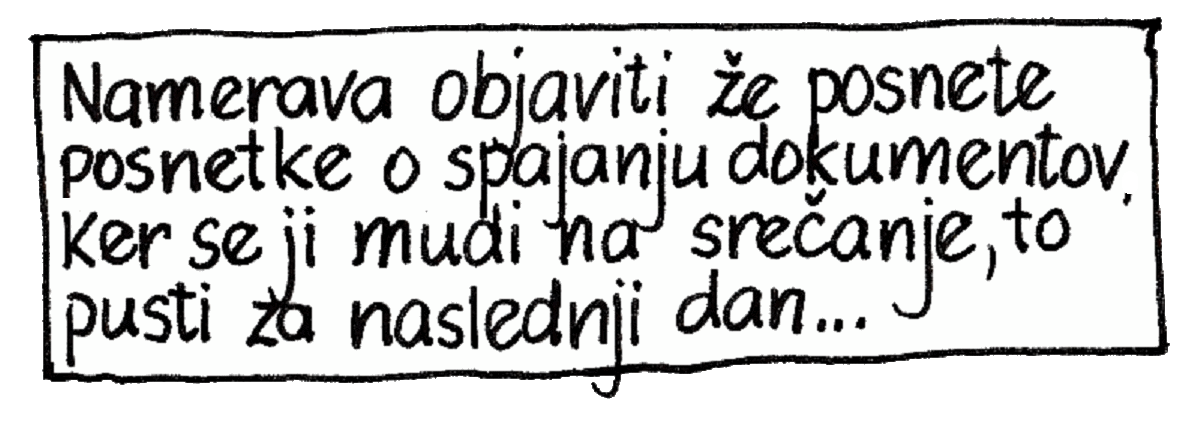 Namerava objaviti že posnete
posnetke o spajanju dokumentov.
Ker se ji mudi na srečanje, to
pusti za naslednji dan...